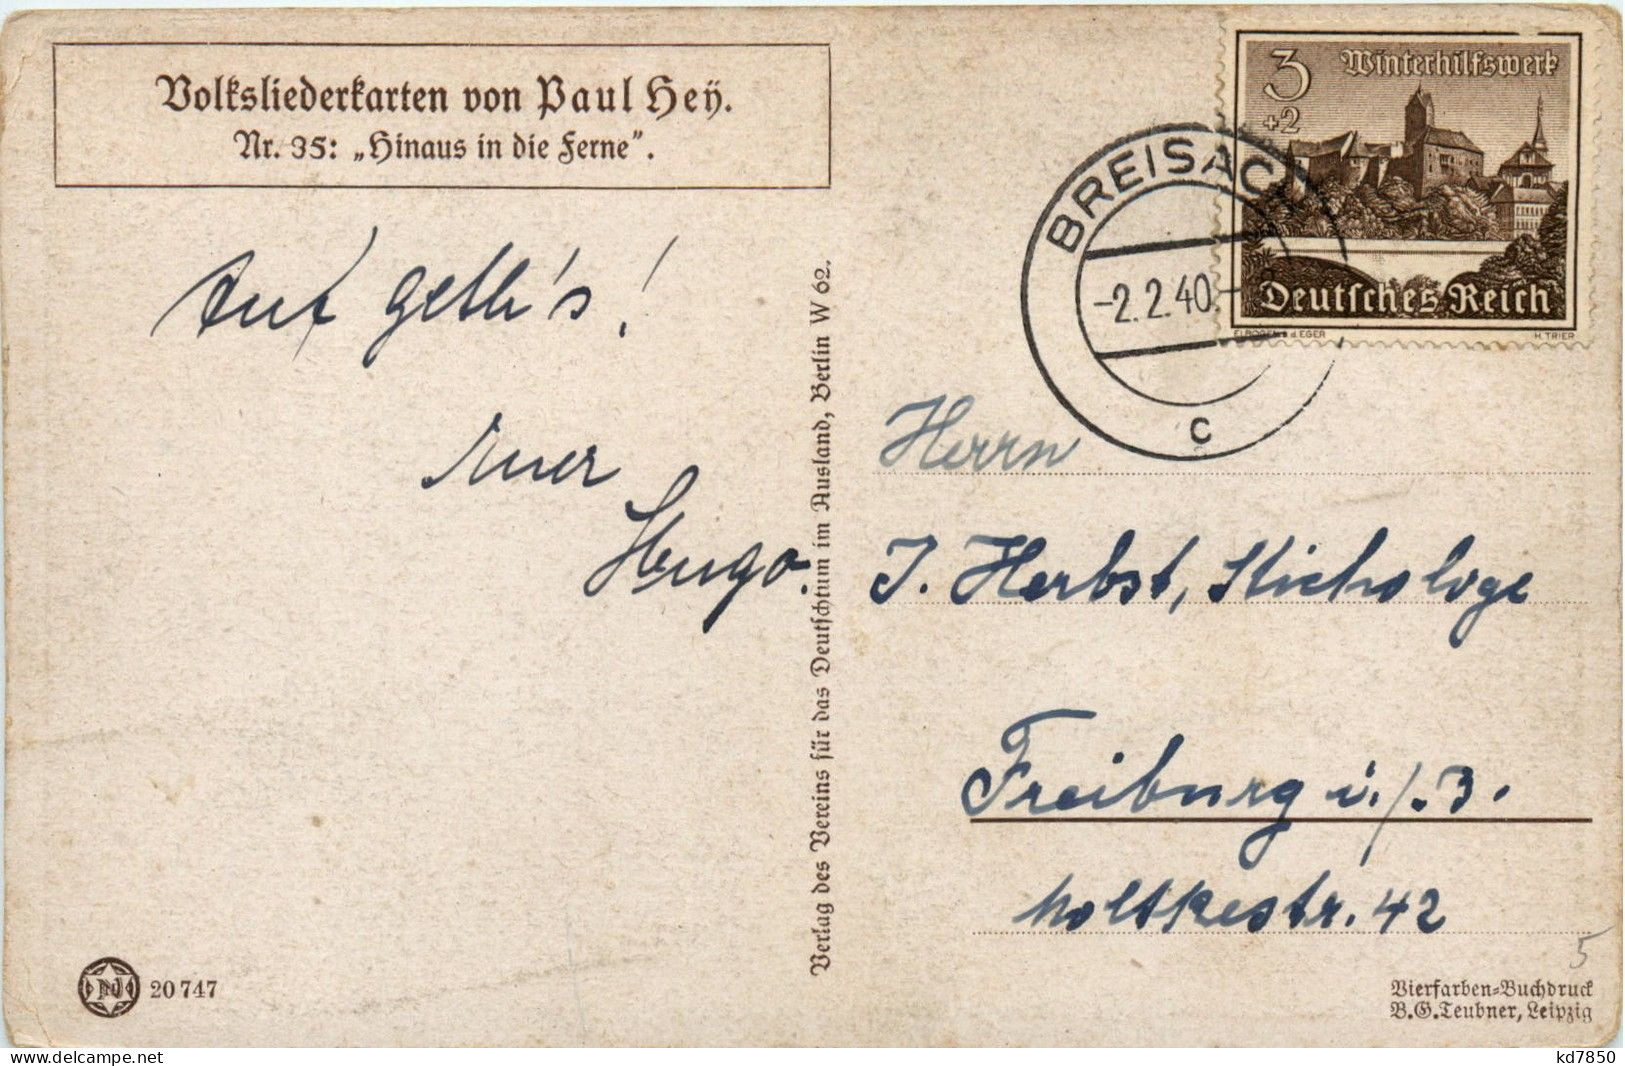 Volksliederkarten von Paul Hey.
Nr. 35: „Hinaus in die Ferne".
Auf geth's!
Euer
Hugo.
Verlag des Vereins für das Deutschtum im Ausland, Berlin W 62.
20747
3
+2
Winterhilfswerk
Deutsches Reich
ELBOGEN a d. EGER
H. TRIER
BREISACH
-2.2.40.-
c
Herrn
J. Herbst,
Freiburg i./B.
Moltkestr. 42
5
Vierfarben-Buchdruck
B.G. Teubner, Leipzig
kd7850